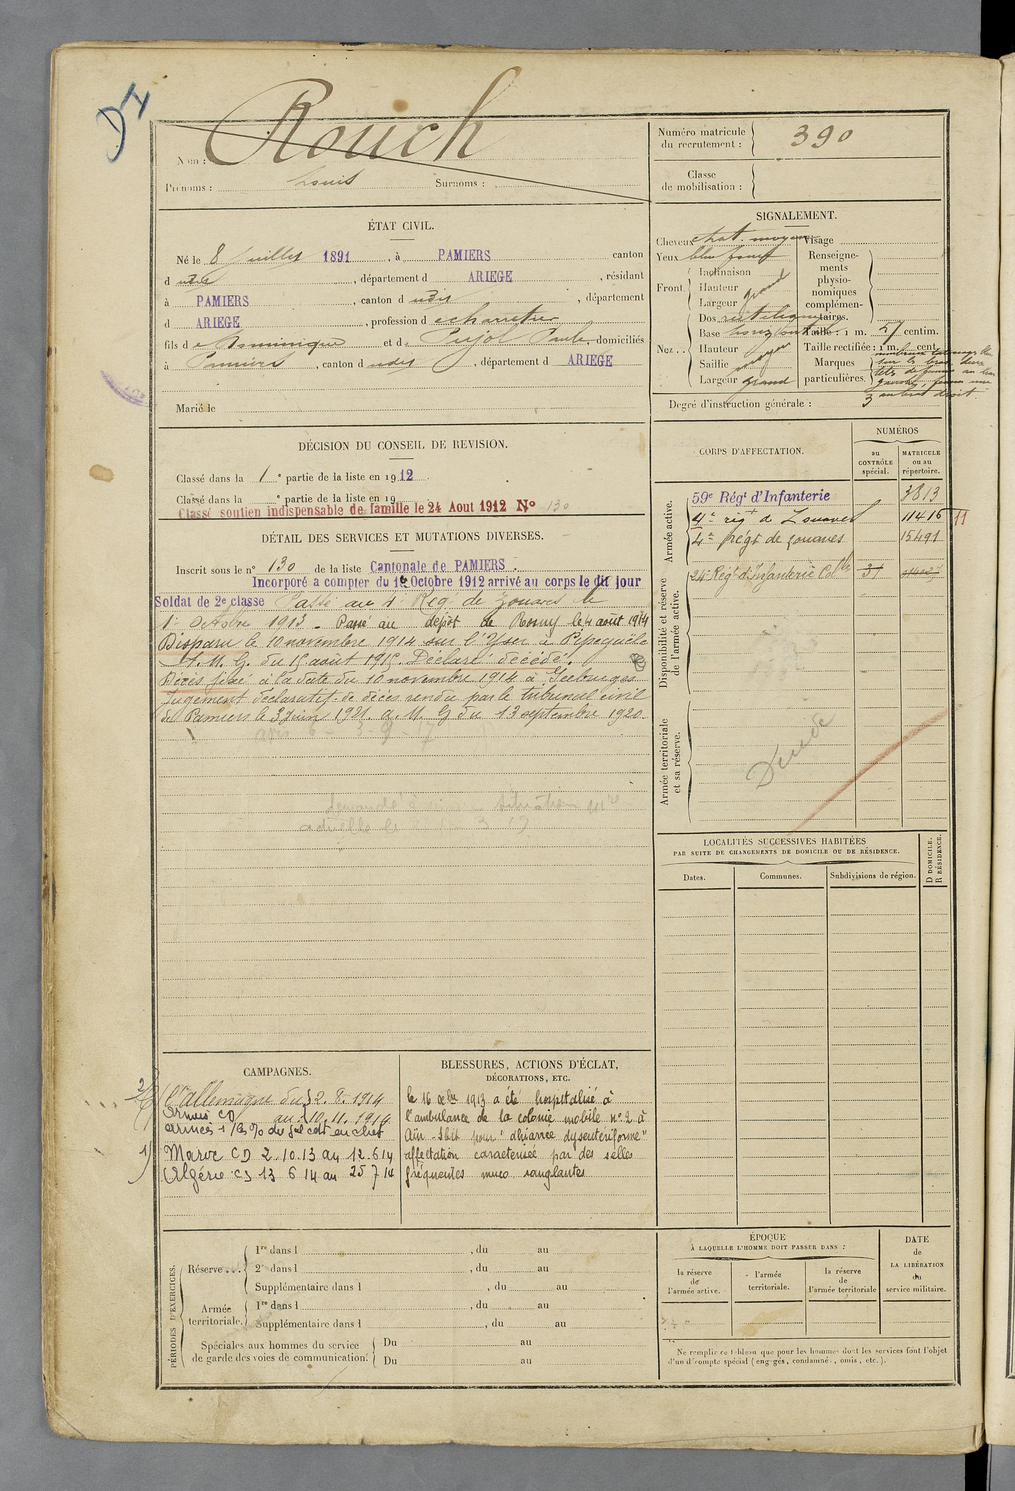 Nom : Rouch
Prénoms : Louis Surnoms :
Numéro matricule du recrutement : 390
Classe de mobilisation :
ÉTAT CIVIL.
Né le 8 Juillet 1891, à PAMIERS canton
d udit, département d ARIEGE, résidant
à PAMIERS, canton d udit, département
d ARIEGE, profession d e charretier
fils d e Dominique et d e Pujol Paule, domiciliés
à Pamiers, canton d udit, département d ARIEGE
Marié le
SIGNALEMENT.
Cheveux chat. moyen Visage
Yeux bleu foncé Renseigne-
ments
physio-
nomiques
complémen-
taires.
Front. Inclinaison
Hauteur grand
Largeur
Nez.. Dos rectiligne
Base horizontale Taille : 1 m. 57 centim.
Hauteur moyen Taille rectifiée : 1 m. cent.
Saillie
Largeur grand
Marques particulières.
sur le bras
tête de femme au bras
gauche, femme nue
au bras droit.
Degré d'instruction générale : 3
DÉCISION DU CONSEIL DE REVISION.
Classé dans la 1e partie de la liste en 1912
Classé dans la e partie de la liste en 19
Classé soutien indispensable de famille le 24 Aout 1912 No 130
DÉTAIL DES SERVICES ET MUTATIONS DIVERSES.
Inscrit sous le no 130 de la liste Cantonale de PAMIERS.
Incorporé a compter du 1e Octobre 1912 arrivé au corps le dit jour
Soldat de 2e classe Passé au 4 Reg. de Zouaves le
1er Octobre 1913. Passé au dépôt de Rosny le 4 août 1914
Disparu le 10 novembre 1914 sur l'Yser à Pepeguële
A. M. G. du 15 août 1915. Déclaré décédé.
Décès fixé à la date du 10 novembre 1914 à
Jugement déclaratif de décès rendu par le tribunal civil
de Pamiers le 3 Juin 1921. a. M. G du 13 septembre 1920.
situation
actuelle le
CORPS D'AFFECTATION.
NUMÉROS
au CONTRÔLE spécial.
MATRICULE ou au répertoire.
Armée active.
59e Régt d'Infanterie 3813
4e régt de Zouaves 11416 11
4e Régt de zouaves 15491
Disponibilité et réserve de l'armée active.
24e Regt d'Infanterie Colle 31
Armée territoriale et sa réserve.
Décédé
LOCALITÉS SUCCESSIVES HABITÉES
PAR SUITE DE CHANGEMENTS DE DOMICILE OU DE RÉSIDENCE.
Dates. Communes. Subdivisions de région. D DOMICILE. R RÉSIDENCE.
CAMPAGNES.
2/ C. allemagne du 2.8.1914
Armées CD au 10.11.1914
Armées
1/ Maroc CD 2.10.13 au 12.6 14
Algérie CS 13 6 14 au 25 7 14
BLESSURES, ACTIONS D'ÉCLAT,
DÉCORATIONS, ETC.
le 16 1913 a été hospitalisé à
l'ambulance de la colonne mobile no 2 à
Aïn-Sbit pour "diarrée dysentériforme"
affectation caractérisée par des selles
fréquentes muco sanglantes
PÉRIODES D'EXERCICES.
Réserve... 1re dans l , du au
2e dans l , du au
Supplémentaire dans l , du au
Armée territoriale. 1re dans l , du au
Supplémentaire dans l , du au
Spéciales aux hommes du service
de garde des voies de communication. Du au
Du au
ÉPOQUE
À LAQUELLE L'HOMME DOIT PASSER DANS :
la réserve de l'armée active. l'armée territoriale. la réserve de l'armée territoriale
DATE de LA LIBÉRATION du service militaire.
Ne remplir ce tableau que pour les hommes dont les services font l'objet
d'un décompte spécial (engagés, condamnés, omis, etc.).